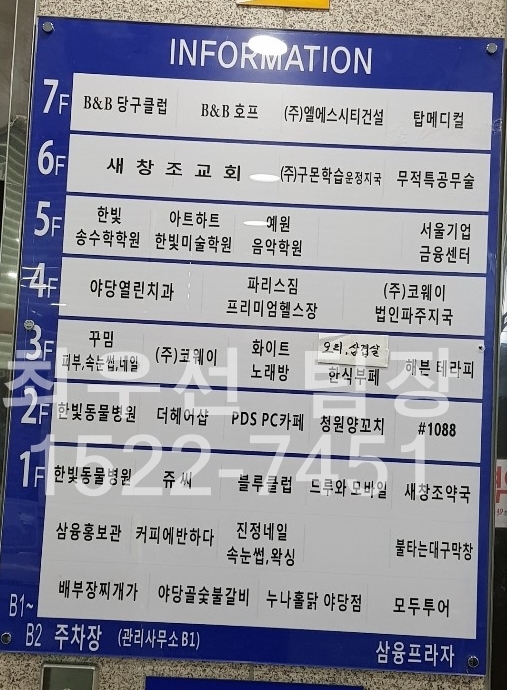 INFORMATION
7F B&B 당구클럽 B&B 호프 (주)엘에스시티건설 탑메디컬
6F 새창조교회 (주)구몬학습운정지국 무적특공무술
5F 한빛 아트하트 예원 서울기업
송수학학원 한빛미술학원 음악학원 금융센터
4F 야당열린치과 파리스짐 (주)코웨이
프리미엄헬스장 법인파주지국
3F 꾸밈 (주)코웨이 화이트 오리,삼겹살 해븐 테라피
피부,속눈썹,네일 노래방 한식부페
최우선 팀장
2F 한빛동물병원 더헤어샵 PDS PC카페 청원양꼬치 #1088
1522-7451
1F 한빛동물병원 쥬씨 블루클럽 드루와 모바일 새창조약국
삼융홍보관 커피에반하다 진정네일 불타는대구막창
속눈썹,왁싱
배부장찌개가 야당골숯불갈비 누나홀닭 야당점 모두투어
B1~
B2 주차장 (관리사무소 B1) 삼융프라자